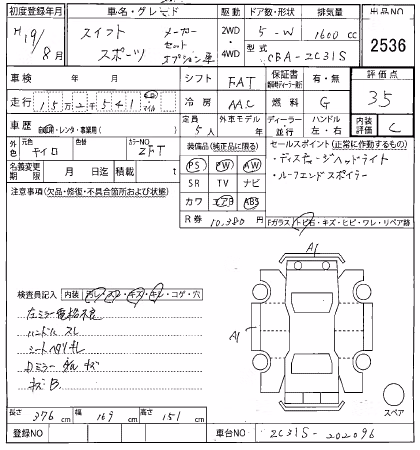 初度登録年月 車名・グレード 駆動 ドア数・形状 排気量 出品NO
H.19/8月 スイフト スポーツ メーカーセットオプション車 2WD 4WD 5-W 1600cc 2536
型式 CBA-ZC31S
車検 年 月 シフト FAT 保証書 有・無 評価点
走行 15万2千541 冷房 AAC 燃料 G 3.5
車歴 自家用・レンタ・事業用( ) 定員 5人 外車モデル 年 ディーラー 並行 ハンドル 左・右 内装評価 C
外色 元色 色替 カラーNO ZFT
装備品(純正品に限る) セールスポイント(正常に作動するもの)
名義変更期限 月 日迄 積載 t PS PW AW
・ディスチャージヘッドライト
注意事項(欠品・修復・不具合箇所および状態) SR TV ナビ
・ルーフエンドスポイラー
カワ エアB ABS
R券 10,380円
Fガラス トビ石・キズ・ヒビ・ワレ・リペア跡
A1
検査員記入 内装 汚レ・スレ・キズ・キレ・コゲ・穴
左ミラー電格不良
ハンドル スレ
A1
シートヘタリ キレ
Dミラー
キズ B
スペア
長さ 376cm 幅 169cm 高さ 151cm
登録NO 車台NO ZC31S-202096